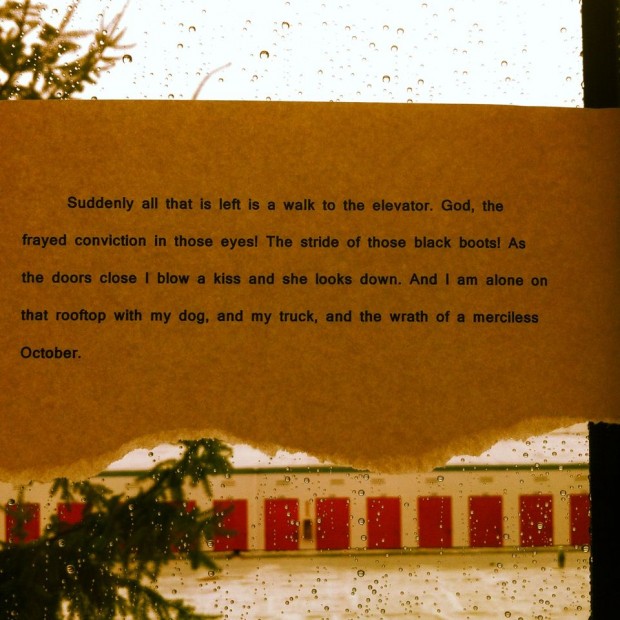 Suddenly all that is left is a walk to the elevator. God, the
frayed conviction in those eyes! The stride of those black boots! As
the doors close I blow a kiss and she looks down. And I am alone on
that rooftop with my dog, and my truck, and the wrath of a merciless
October.